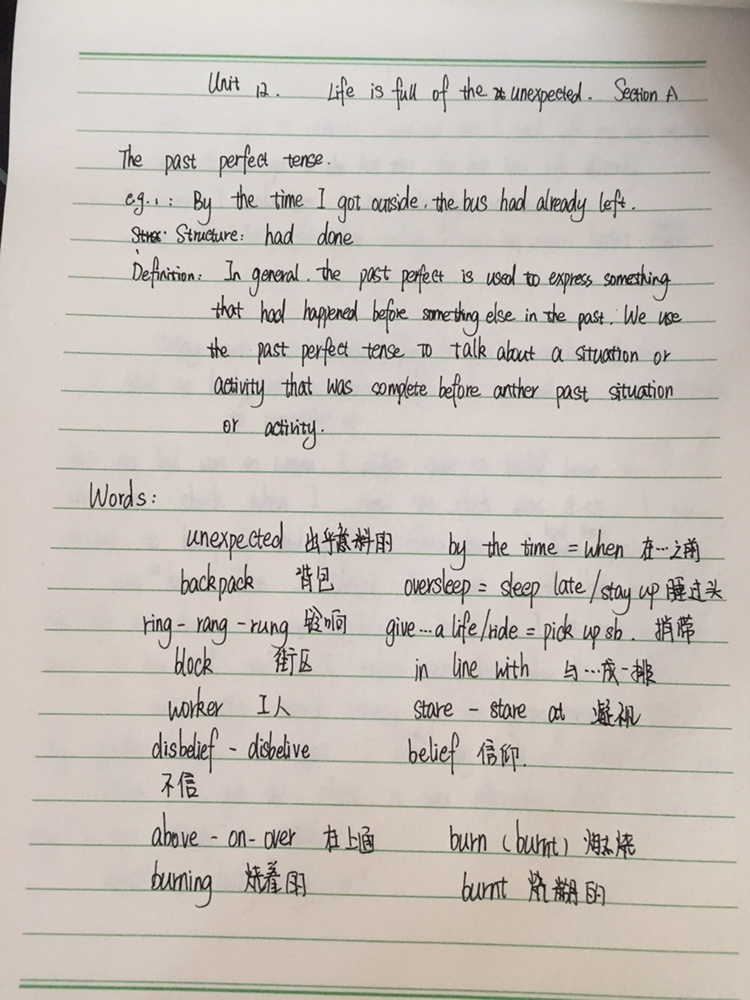 Unit 12. Life is full of the unexpected. Section A
The past perfect tense.
e.g.1: By the time I got outside, the bus had already left.
Structure: had done
Definition: In general, the past perfect is used to express something
that had happened before something else in the past. We use
the past perfect tense to talk about a situation or
activity that was complete before anther past situation
or activity.
Words:
unexpected 出乎意料的 by the time = when 在…之前
backpack 背包 oversleep = sleep late/stay up 睡过头
ring - rang - rung 铃响 give…a life/ride = pick up sb. 捎带
block 街区 in line with 与…成一排
worker 工人 stare - stare at 凝视
disbelief - disbelive belief 信仰.
不信
above - on - over 在上面 burn (burnt) 燃烧
burning 烧着的 burnt 烧糊的